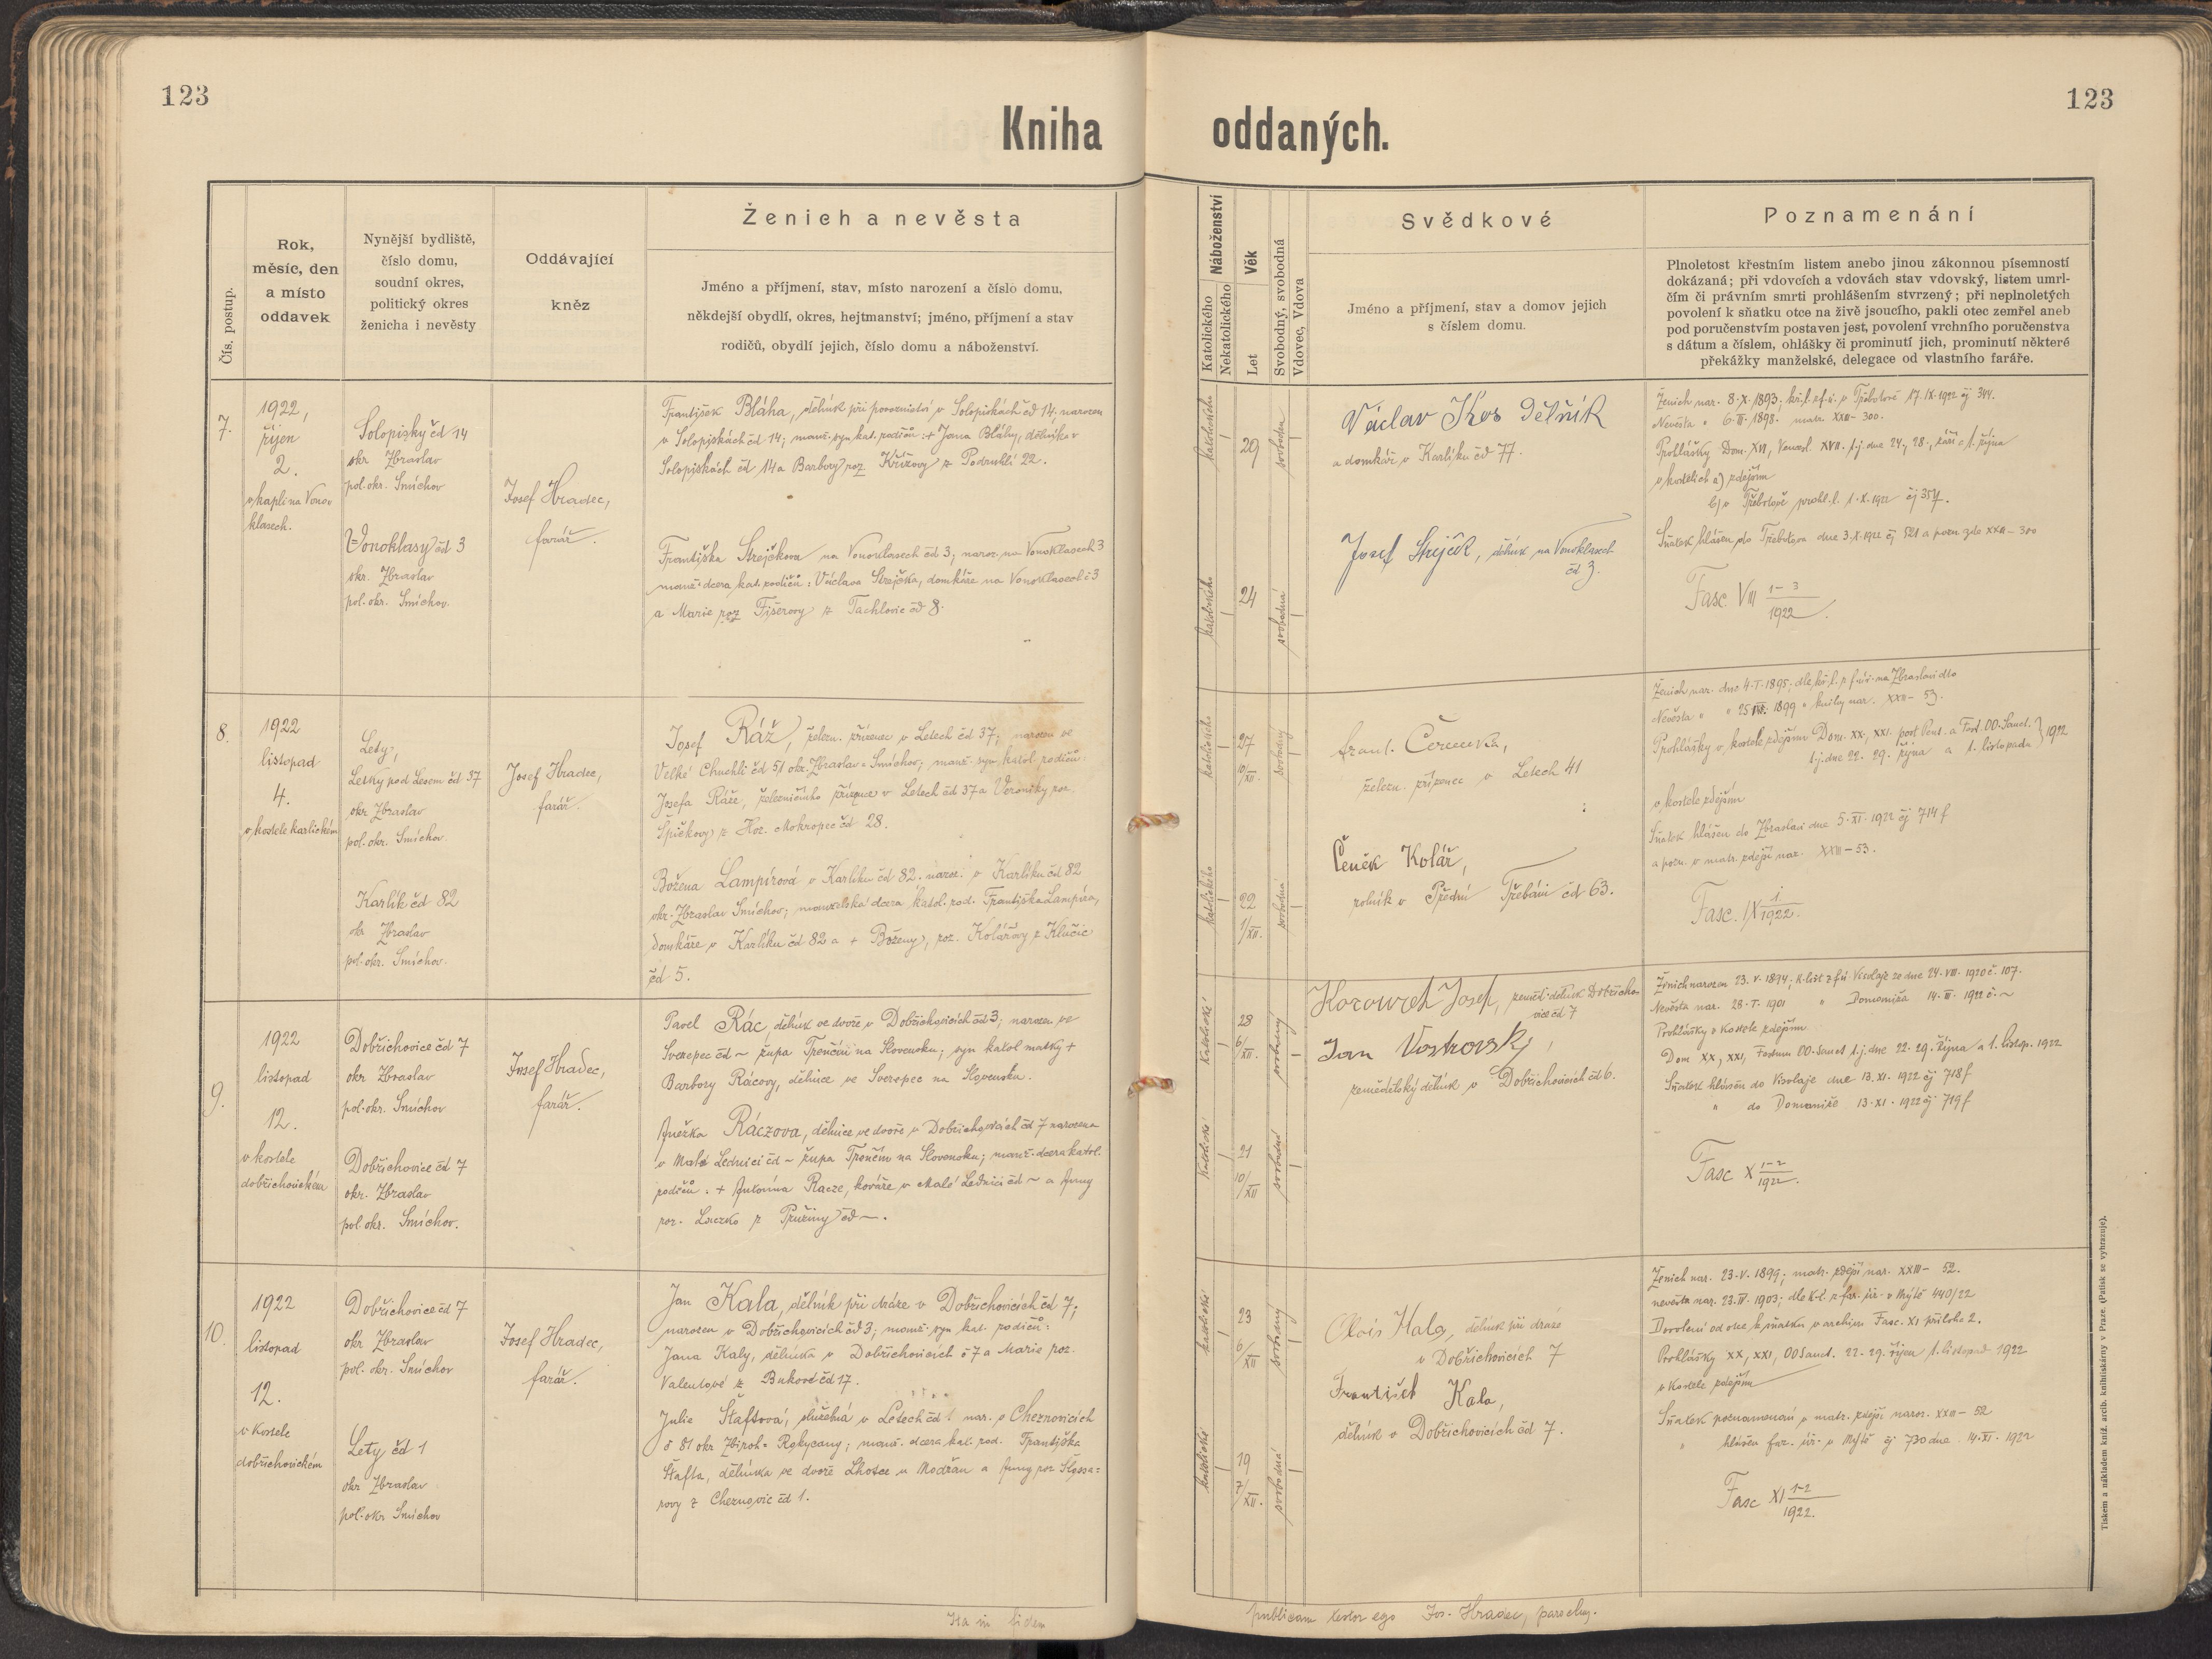 123
123
Kniha oddaných.
Čís. postup.
Rok,
měsíc, den
a místo
oddavek
Nynější bydliště,
číslo domu,
soudní okres,
politický okres
ženicha i nevěsty
Oddávající
kněz
Ženich a nevěsta
Jméno a příjmení, stav, místo narození a číslo domu,
někdejší obydlí, okres, hejtmanství; jméno, příjmení a stav
rodičů, obydlí jejich, číslo domu a náboženství.
Náboženství
Katolického
Nekatolického
Věk
Let
Svobodný, svobodná
Vdovec, Vdova
Svědkové
Jméno a příjmení, stav a domov jejich
s číslem domu.
Poznamenání
Plnoletost křestním listem anebo jinou zákonnou písemností
dokázaná; při vdovcích a vdovách stav vdovský, listem umrl-
čím či právním smrti prohlášením stvrzený; při neplnoletých
povolení k sňatku otce na živě jsoucího, pakli otec zemřel aneb
pod poručenstvím postaven jest, povolení vrchního poručenstva
s dátum a číslem, ohlášky či prominutí jich, prominutí některé
překážky manželské, delegace od vlastního faráře.
7.
1922,
říjen
2.
v kapli na Vono-
klasech.
Solopisky čd 14
okr Zbraslav
pol. okr. Smíchov
Vonoklasy čd 3
okr. Zbraslav
pol. okr. Smíchov.
Josef Hradec,
farář.
František Bláha, dělník při povoznictví v Solopiskách čd 14, narozen
v Solopiskách čd 14; manž. syn kat. rodičů: + Jana Bláhy, dělníka v
Solopiskách čd 14 a Barbory roz. Křížovy z Podruhlí 22.
Františka Strejčkova na Vonoklasech čd 3, naroz. na Vonoklasech 3
manž. dcera kat. rodičů: Václava Strejčka, domkáře na Vonoklasech č 3
a Marie roz Fišerovy z Tachlovic čd 8.
katolického
29
svoboden
katolického
24
svobodná
Václav Kos dělník
a domkář v Karlíku čd 77.
Josef Strejček, dělník na Vonoklasech
čd 3.
Ženich nar. 8.X.1893; kř. l. z f. ú. v Třebotově 17.IX.1922 čj 344.
Nevěsta " 6.III.1898. matr. XXIII - 300.
Prohlášky Dom. XVI, Vencesl. XVII. t.j. dne 24, 28., září a 1. října
v kostelích a) zdejším
b) v Třebotově prohl. l. 1.X.1922 čj 357.
Sňatek hlášen do Třebotova dne 3.X.1922 čj 521 a pozn zde XXIII - 300
Fasc. VIII 1-3
1922.
8.
1922
listopad
4.
v kostele karlickém
Lety,
Letky pod Lesem čd 37
okr Zbraslav
pol. okr. Smíchov.
Karlík čd 82
okr Zbraslav
pol. okr. Smíchov.
Josef Hradec,
farář.
Josef Ráž, železn. zřízenec v Letech čd 37; narozen ve
Velké Chuchli čd 51 okr. Zbraslav = Smíchov; manž. syn katol. rodičů:
Josefa Ráže, železničního zřízence v Letech čd 37 a Veroniky roz.
Špičkovy z Hor. Mokropec čd 28.
Božena Lampírová v Karlíku čd 82. naroz. v Karlíku čd 82
okr. Zbraslav Smíchov; manželská dcera katol. rod. Františka Lampíra,
domkáře v Karlíku čd 82 a + Boženy, roz. Kolářovy z Klučic
čd 5.
katolického
27
10/XII.
svobodný
katolického
22
1/XII.
svobodná
Frant. Červenka,
železn. zřízenec v Letech 41
Čeněk Kolář,
rolník v Přední Třebáni čd 63.
Ženich nar. dne 4.I.1895; dle kř. l. z f. úř. na Zbraslavi dto
Nevěsta " " 25 III. 1899 " knihy nar. XXIII - 53.
Prohlášky v kostele zdejším Dom. XX, XXI. post Pent. a Fest. OO. Sanct.
t.j. dne 22. 29. října a 1. listopadu } 1922
v kostele zdejším
Sňatek hlášen do Zbraslavi dne 5.XI.1922 čj 714 f
a pozn. v matr. zdejší nar. XXIII - 53.
Fasc. IX 1
1922.
9.
1922
listopad
12.
v kostele
dobřichovickém
Dobřichovice čd 7
okr Zbraslav
pol. okr. Smíchov
Dobřichovice čd 7
okr. Zbraslav
pol okr. Smíchov.
Josef Hradec,
farář.
Pavel Rác, dělník ve dvoře v Dobřichovicích čd 3; narozen ve
Sverepec čd ~ župa Trenčín na Slovensku; syn katol matky +
Barbory Rácovy, dělnice ve Sverepec na Slovensku.
Anežka Ráczova, dělnice ve dvoře v Dobřichovicích čd 7 narozena
v Malé Lednici čd ~ župa Trenčín na Slovensku; manž. dcera katol.
rodičů: + Antonína Racze, kováře v Malé Lednici čd ~ a Anny
roz. z Pružiny čd ~.
katolické
28
6/XII.
svobodný
katolické
21
10/XII
svobodná
Josef, zeměd. dělník Dobřicho-
vice čd 7
Jan Vostrovský,
zemědělský dělník v Dobřichovicích čd 6.
Ženich narozen 23.V.1894; k. list z f. ú Visolaje ze dne 24.VIII.1920 č. 107.
Nevěsta nar. 28.I.1901 " Domaniža 14.III.1922 č. ~
Prohlášky v kostele zdejším
Dom XX, XXI, Festum OO. Sanct t.j. dne 22. 29. října a 1. listop. 1922
Sňatek hlášen do Visolaje dne 13.XI.1922 čj 718 f
" do Domaniže 13.XI.1922 čj 719 f
Fasc X 1-2
1922.
10.
1922
listopad
12.
v kostele
dobřichovickém
Dobřichovice čd 7
okr Zbraslav
pol. okr. Smíchov
Lety čd 1
okr Zbraslav
pol. okr Smíchov
Josef Hradec,
farář.
Jan Kala, dělník při dráze v Dobřichovicích čd 7;
narozen v Dobřichovicích čd 3; manž. syn kat. rodičů:
Jana Kaly, dělníka v Dobřichovicích č 7 a Marie roz.
Valentové z Bukové čd 17.
Julie Staftová, služebná v Letech čd 1 nar. v Cheznovicích
č 81 okr Zbiroh = Rokycany; manž. dcera kat. rod. Františka
Štafta, dělníka ve dvoře Lhotce u Modřan a Anny roz
rovy z Cheznovic čd 1.
katolické
23
6/XII
svobodný
katolické
19
7/XII.
svobodná
Alois Kala, dělník při dráze
v Dobřichovicích 7
František Kala,
dělník v Dobřichovicích čd 7.
Ženich nar. 23.V.1899; matr. zdejší nar. XXIII - 52.
nevěsta nar. 23.IV.1903; dle k. l. z far. úř. v Mýtě 440/22
Dovolení od otce k sňatku v archivu Fasc. XI příloha 2.
Prohlášky XX, XXI, OO Sanct. 22. 29. října 1. listopad 1922
v kostele zdejším
Sňatek poznamenán v matr. zdejší naroz. XXIII - 52
" hlášen far. úř. v Mýtě čj 730 dne 14.XI.1922
Fasc XI 1-2
1922.
Ita in fidem publicam testor ego Jos. Hradec, parochus.
Tiskem a nákladem kníž. arcib. knihtiskárny v Praze. (Patisk se vyhrazuje).